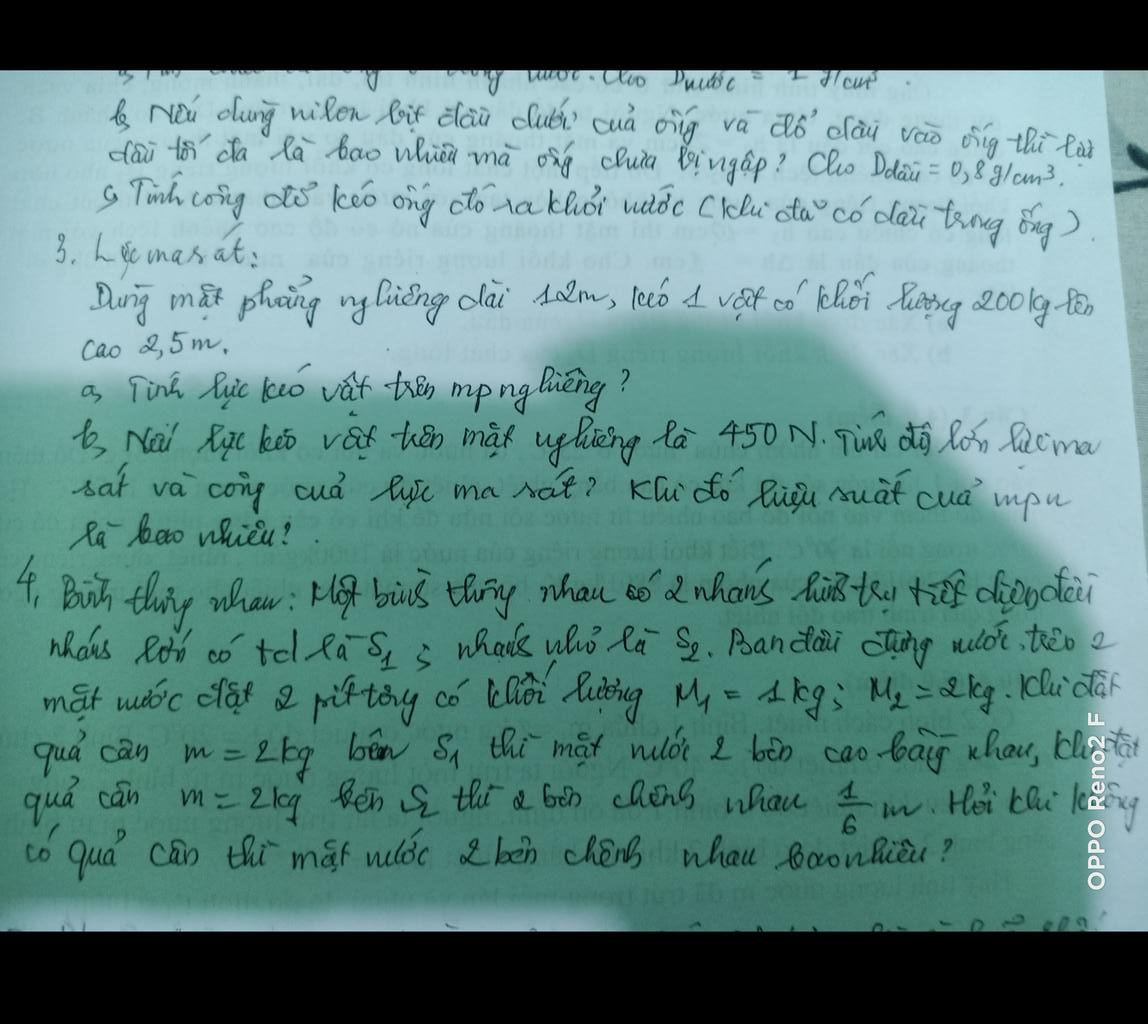 nước. Cho Dnước = 1 g/cm³
b, Nếu dùng nilon bịt đầu dưới của ống và đổ dầu vào ống thì lại
dầu tối đa là bao nhiêu mà ống chưa bị ngập? Cho Ddầu = 0,8 g/cm³.
c, Tính công để kéo ống đó ra khỏi nước (khi đã có dầu trong ống).
3. Lực ma sát.
Dùng mặt phẳng nghiêng dài 12m, kéo 1 vật có khối lượng 200kg lên
cao 2,5m.
a, Tính lực kéo vật trên mp nghiêng?
b, Nếu lực kéo vật trên mặt nghiêng là 450 N. Tính độ lớn lực ma
sát và công của lực ma sát? Khi đó hiệu suất của mpn
là bao nhiêu?
4, Bình thông nhau: Một bình thông nhau có 2 nhánh hình trụ tiết diện đều
nhánh lớn có td là S1; nhánh nhỏ là S2. Ban đầu đựng nước. trên 2
mặt nước đặt 2 pít tông có khối lượng M1 = 1kg; M2 = 2kg. Khi đặt
quả cân m = 2kg bên S1 thì mặt nước 2 bên cao bằng nhau, khi đặt
quả cân m = 2kg bên S2 thì 2 bên chênh nhau 1/6 m. Hỏi khi không
có quả cân thì mặt nước 2 bên chênh nhau bao nhiêu?
OPPO Reno2 F